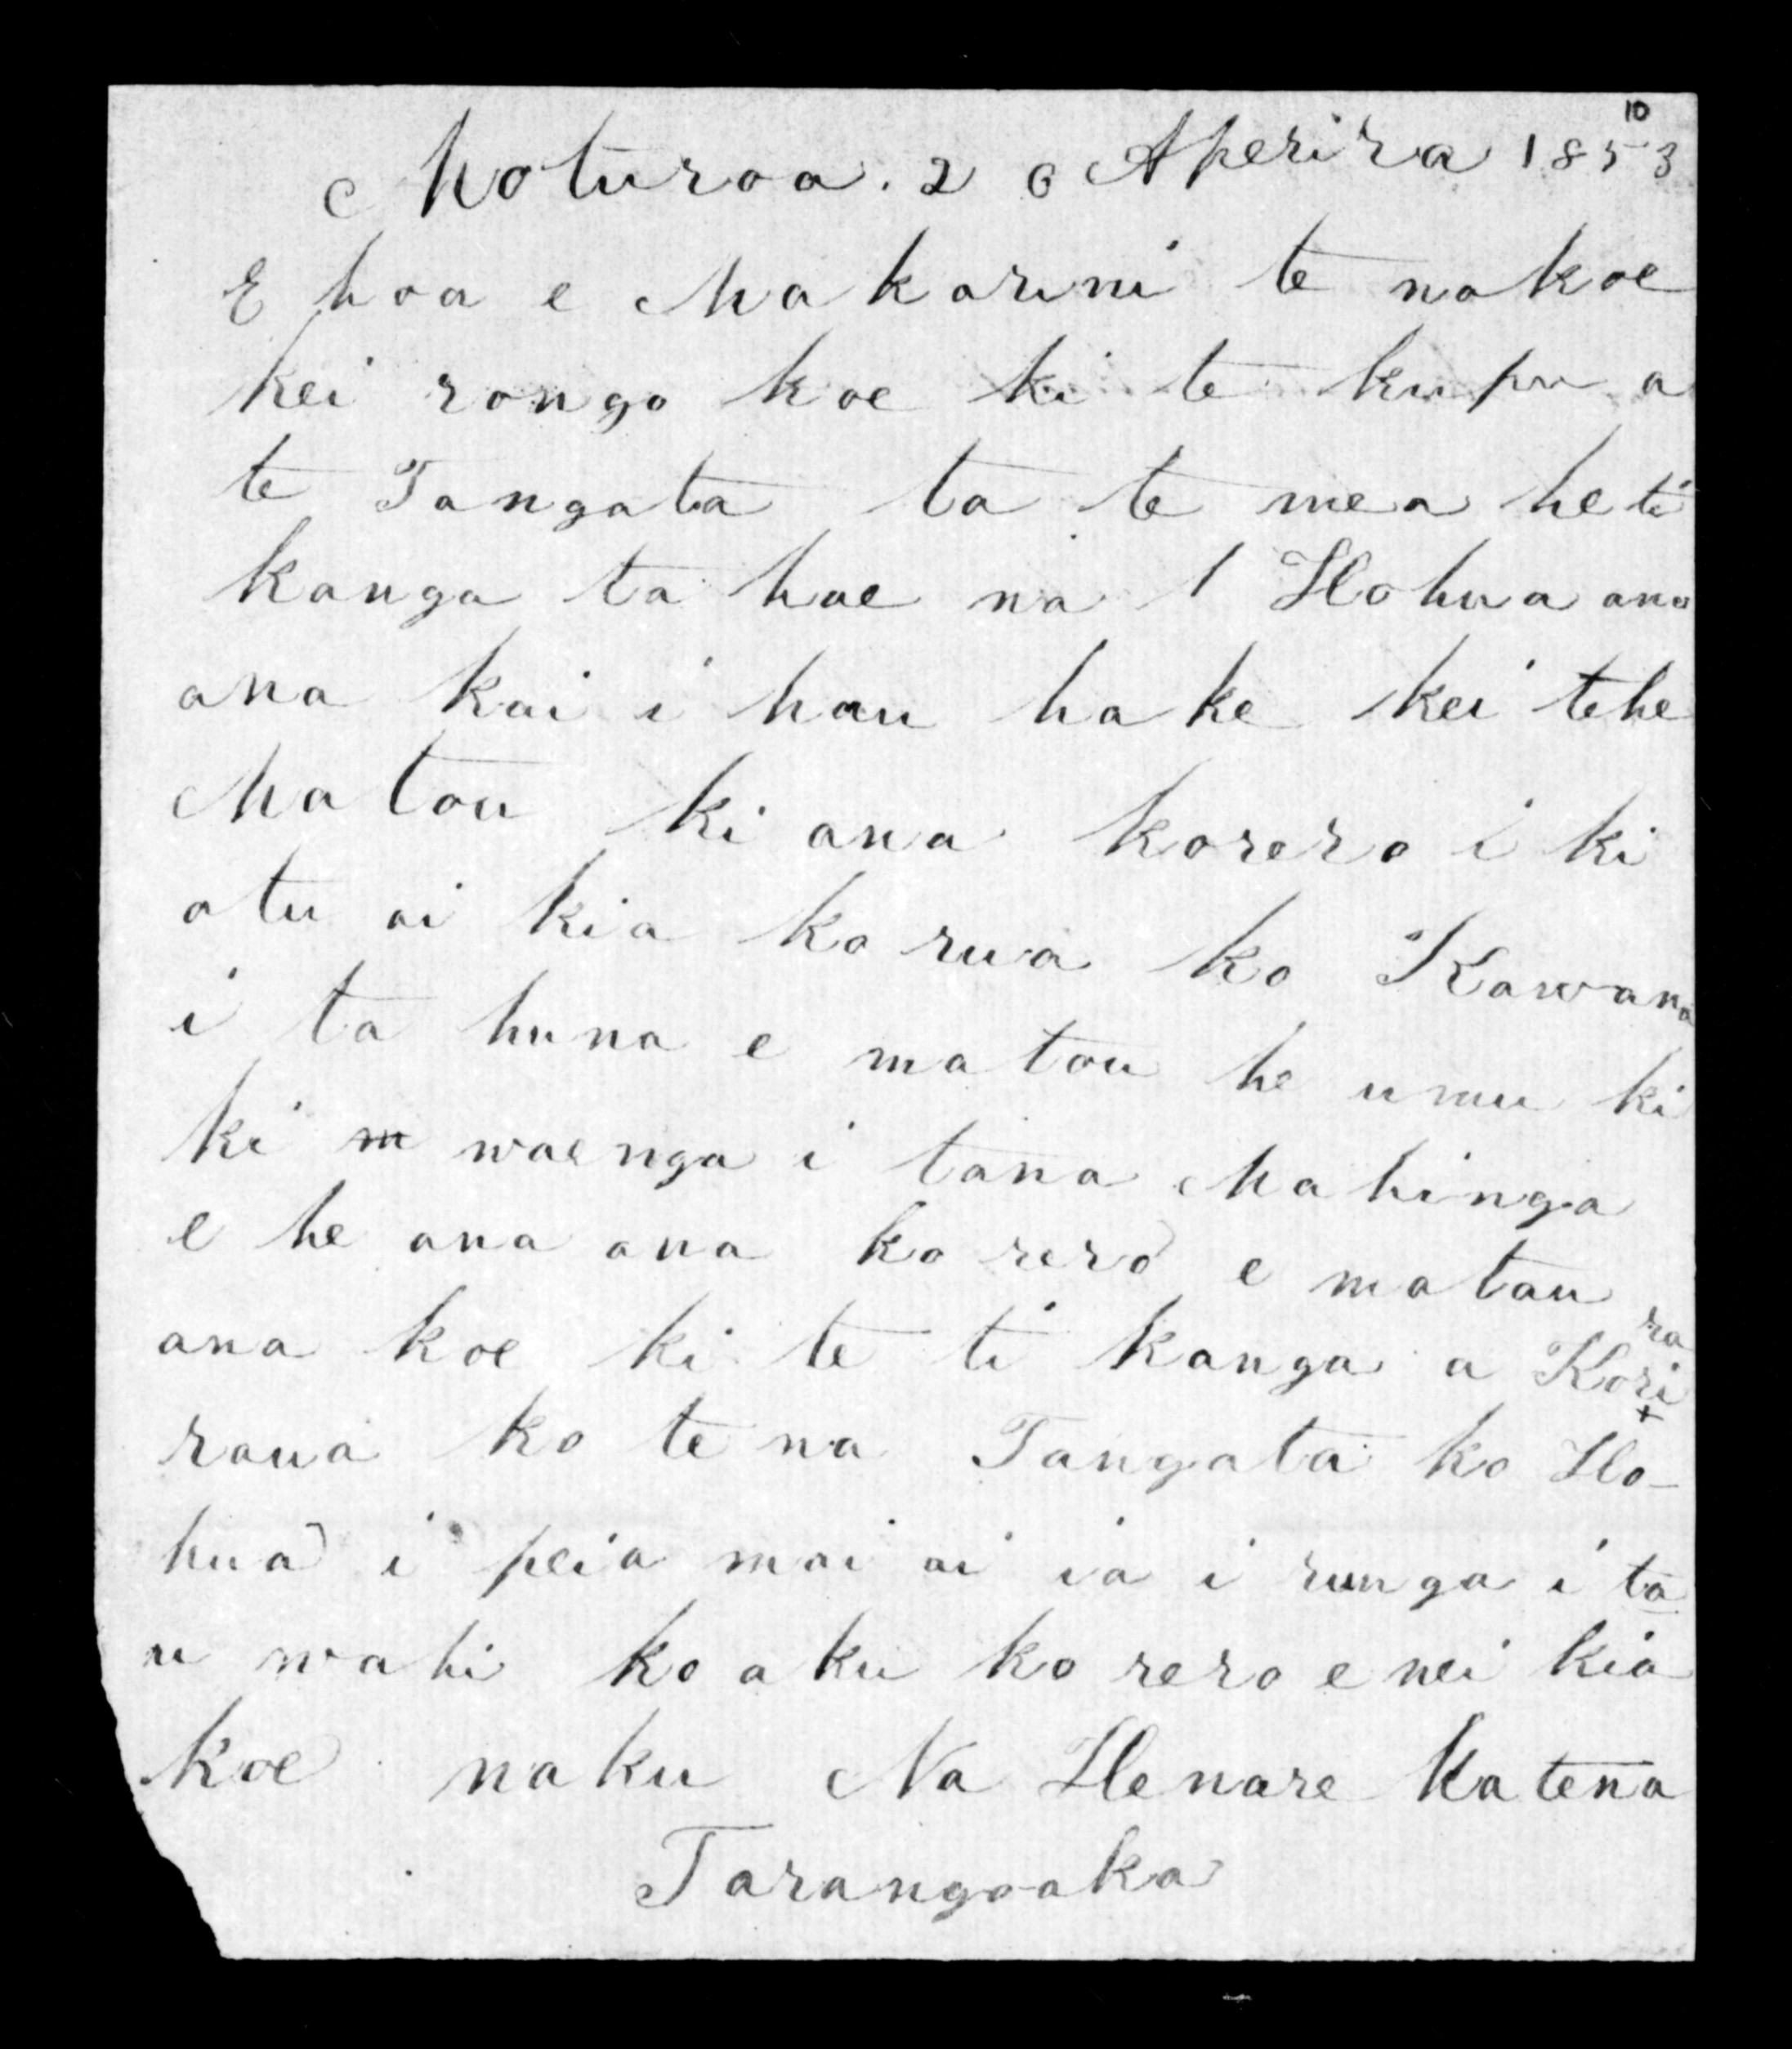 10
Moturoa. 2 6 Aperira 1853
E hoa e Makarini te nakoe
kei rongo koe ki te kupu a
te Tangata ta te mea he ti
kanga ta hae na / Hohua ana
ana kai i hau hake kei tehe
Matou ki ana korero i ki
atu ai kia ko rua ko Kawana
i ta huna e matou he umu ki
ki m waenga i tana Mahinga
e he ana ana ko rero e matau
ana koe ki te ti kanga a Kori
ra
+
raua ko te na Tangata ko Ho-
hua i peia mai ai ia i runga i ta
u wahi ko aku ko rero e nei kia
koe naku Na Henare Katena
Tarangaaka